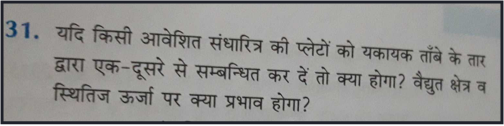 31. यदि किसी आवेशित संधारित्र की प्लेटों को यकायक ताँबे के तार
द्वारा एक-दूसरे से सम्बन्धित कर दें तो क्या होगा? वैद्युत क्षेत्र व
स्थितिज ऊर्जा पर क्या प्रभाव होगा?